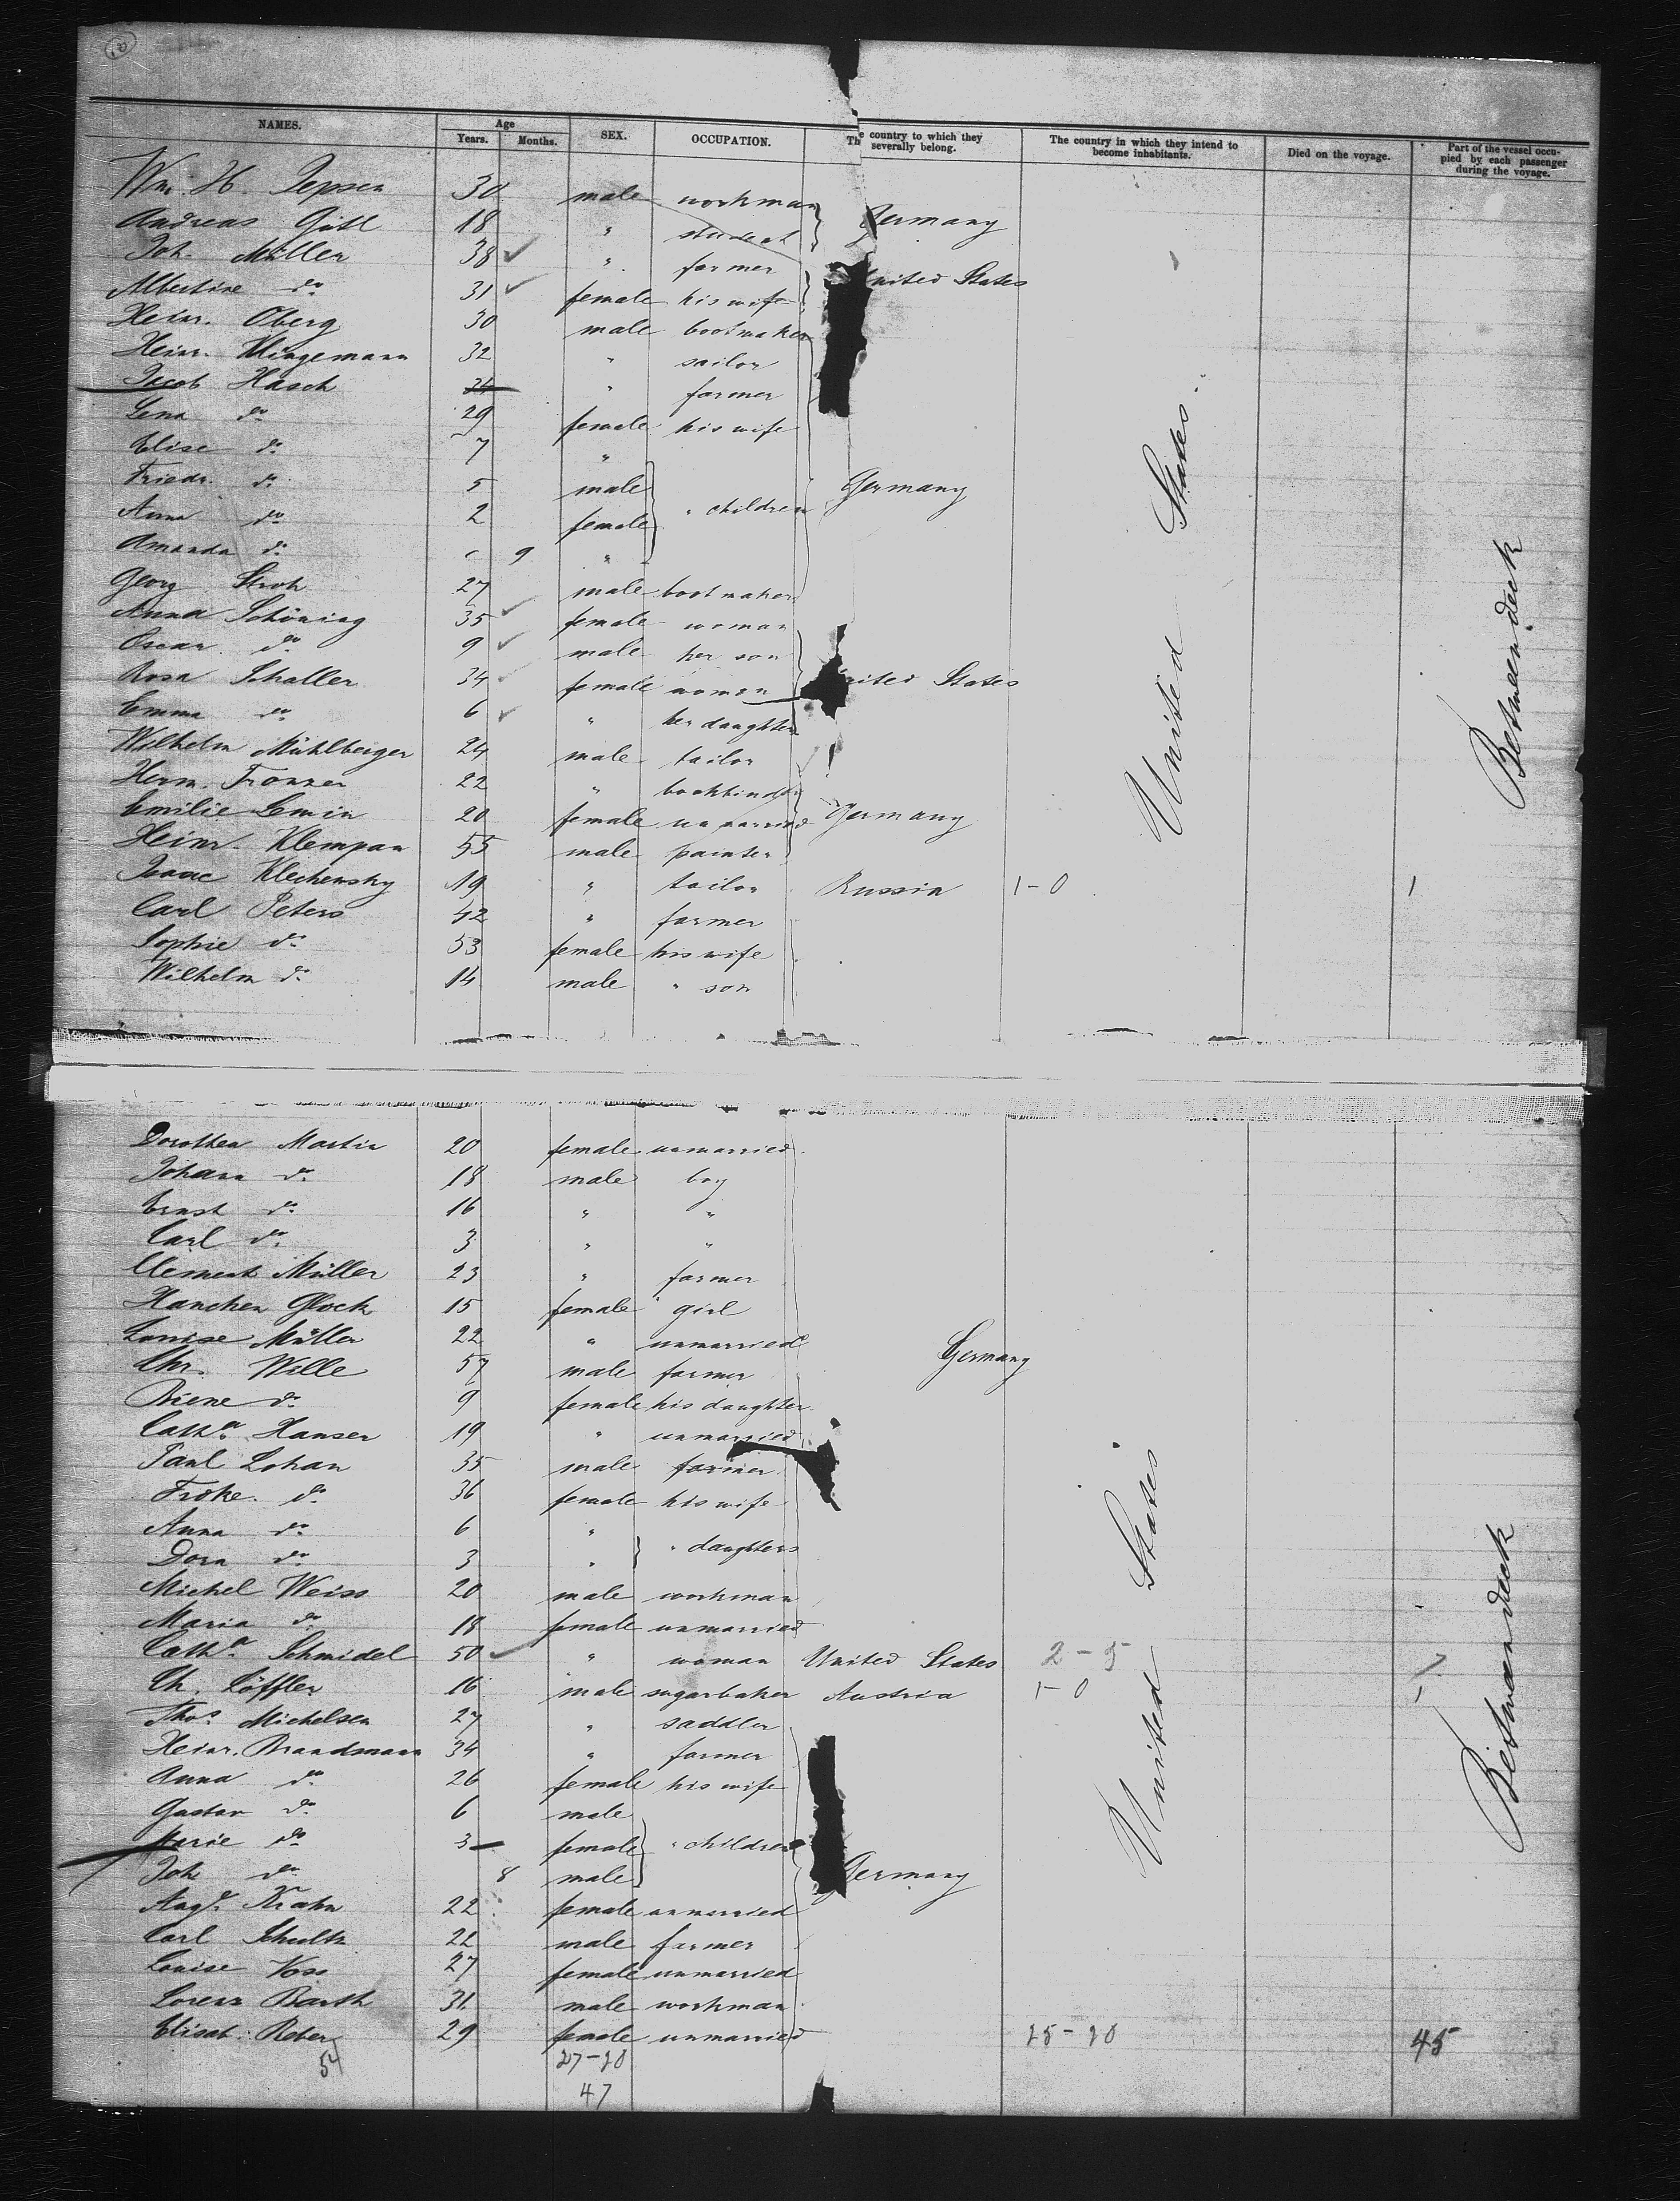 NAMES. Age Years. Months. SEX. OCCUPATION. The country to which they severally belong. The country in which they intend to become inhabitants. Died on the voyage. Part of the vessel occupied by each passenger during the voyage.
Wm. H. Jepsen 30 male workman
Andreas 18 " student Germany
Joh. Müller 38 " farmer
Albertine do 31 female his wife United States
Heinr. Oberg 30 male bootmaker
Heinr. Klingemann 32 " sailor
Jacob Hasch 34 " farmer
Lena do 29 female his wife
Elise do 7 "
Friedr. do 5 male Germany
Anna do 2 female " children
Amanda do - 9 "
Georg Stroh 27 male bootmaker
Anna Schöning 35 female woman
Oscar do 9 male her son
Rosa Schaller 34 female woman United States
Emma do 6 " her daughter
Wilhelm Mühlberger 24 male tailor
Herm. Tronzer 22 " bookbinder
Emilie Lewin 20 female unmarried Germany
Heinr. Klempan 55 male painter
Isaac Klechewsky 19 " tailor Russia 1-0 1
Carl Peters 42 " farmer
Sophie do 53 female his wife
Wilhelm do 14 male " son
United States
Between deck
Dorothea Martin 20 female unmarried
Johann do 18 male boy
Ernst do 16 " "
Carl do 3 " "
Clement Müller 23 " farmer
Hanchen Glock 15 female girl
Louise Müller 22 " unmarried
Chr. Wille 57 male farmer Germany
Biene do 9 female his daughter
Catha. Hanser 19 " unmarried
Paul Lohan 35 male farmer
Froke do 36 female his wife
Anna do 6 "
Dora do 3 " " daughters
Michel Weiss 20 male workman
Maria do 18 female unmarried
Catha. Schmidel 50 " woman United States 2-5 7
Ch. Löffler 16 male sugarbaker Austria 1-0 1
Thos. Michelsen 27 " saddler
Heinr. Brandmann 34 " farmer
Anna do 26 female his wife
Gustav do 6 male
Marie do 3 female " children
Joh do 8 male Germany
Augt. Krahn 22 female unmarried
Carl Schultz 22 male farmer
Louise Voss 27 female unmarried
Lorenz Barth 31 male workman
Elisab. Reber 29 female unmarried 25-20 45
54 27-20
47
United States
Between deck